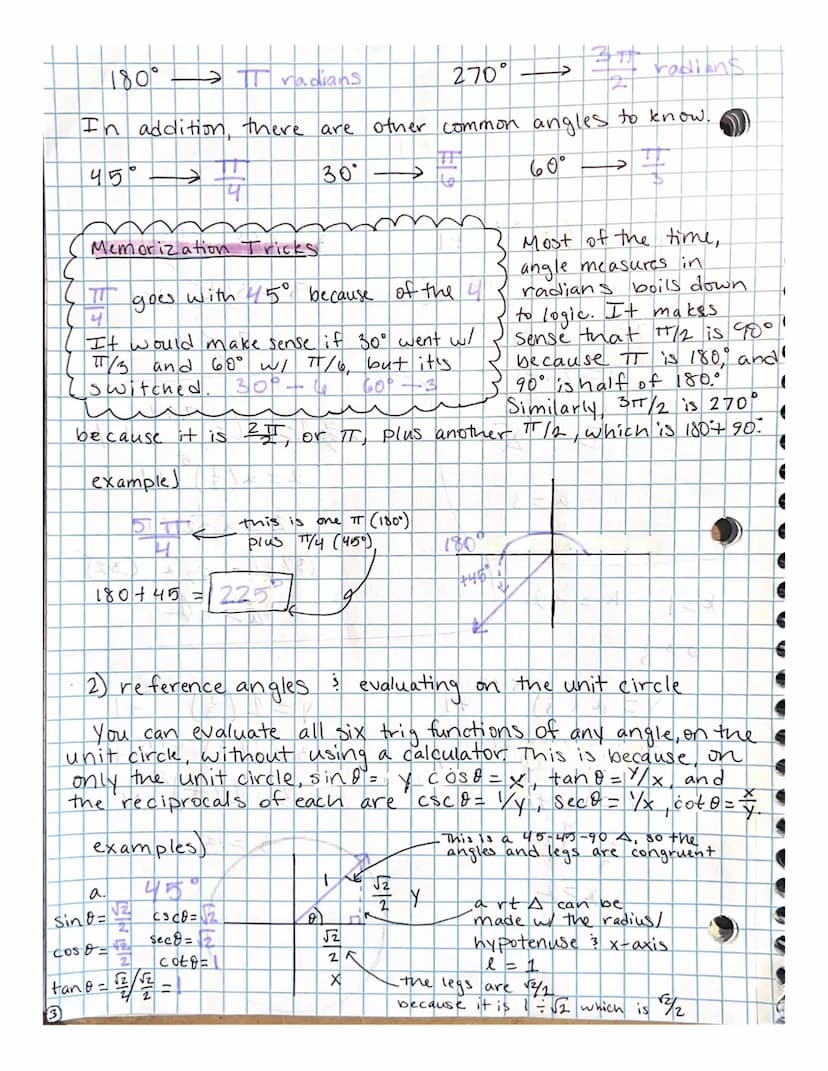 180° → π radians 270° → 3π/2 radians
In addition, there are other common angles to know.
45° → π/4 30° → π/6 60° → π/3
Memorization Tricks
π/4 goes with 45° because of the 4
It would make sense if 30° went w/
π/3 and 60° w/ π/6, but it's
switched. 30° – 6 60° – 3
Most of the time,
angle measures in
radians boils down
to logic. It makes
sense that π/2 is 90°
because π is 180,° and
90° is half of 180.°
Similarly, 3π/2 is 270°
because it is 2π/2, or π, plus another π/2, which is 180+90.°
example)
5π/4 ← this is one π (180°)
plus π/4 (45°)
180+45 = 225°
180°
+45°
2) reference angles & evaluating on the unit circle
You can evaluate all six trig functions of any angle, on the
unit circle, without using a calculator. This is because, on
only the unit circle, sin θ = y cos θ = x, tan θ = y/x, and
the reciprocals of each are csc θ = 1/y, sec θ = 1/x, cot θ = x/y.
examples)
This is a 45-45-90 △, so the
angles and legs are congruent
a. 45°
sin θ = √2/2 csc θ = √2
cos θ = √2/2 sec θ = √2
cot θ = 1
tan θ = √2/2 / √2/2 = 1
1
√2/2 y
θ
√2/2
x
a rt △ can be
made w/ the radius/
hypotenuse & x-axis
l = 1
the legs are √2/2
because it is 1 ÷ √2 which is √2/2
3